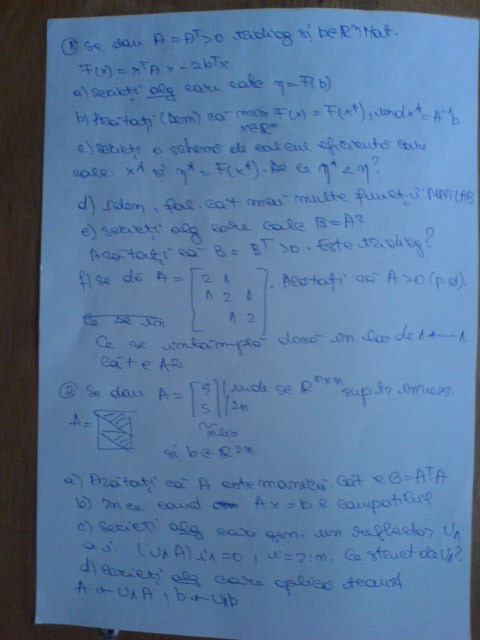 ① Se dau A = Aᵀ > 0 tridiag și b ∈ Rⁿ. Not.
F(x) = xᵀAx - 2bᵀx
a) scrieți alg care calc η = F(b)
b) Arătați (dem) că min F(x) = F(x*), und x* = A⁻¹b
x∈Rⁿ
c) scrieți o schemă de calcul eficientă care
calc. x* și η* = F(x*). De ce η* < η?
d) Idem, fol. cât mai multe funcții MATLAB
e) scrieți alg care calc B = A²
Arătați că B = Bᵀ > 0. Este tridiag?
f) se dă A = [2 1
1 2 1
1 2]. Arătați că A > 0 (p.d).
Ce se în
Ce se întâmplă dacă în loc de 1 ← -1
Cât e A²
② Se dau A = [S
S] } 2n unde S ∈ Rⁿˣⁿ sup tr invers
n
și b ∈ R²ⁿ
a) Arătați că A este monică. Cât e G = AᵀA
b) În ce cond Ax = b e compatibil
c) scrieți alg care gen. un reflector U₁
a.î. (U₁A)i1 = 0, i = 2:m. Ce struct are U₁?
d) scrieți alg care aplică transf
A ← U₁A, b ← U₁b